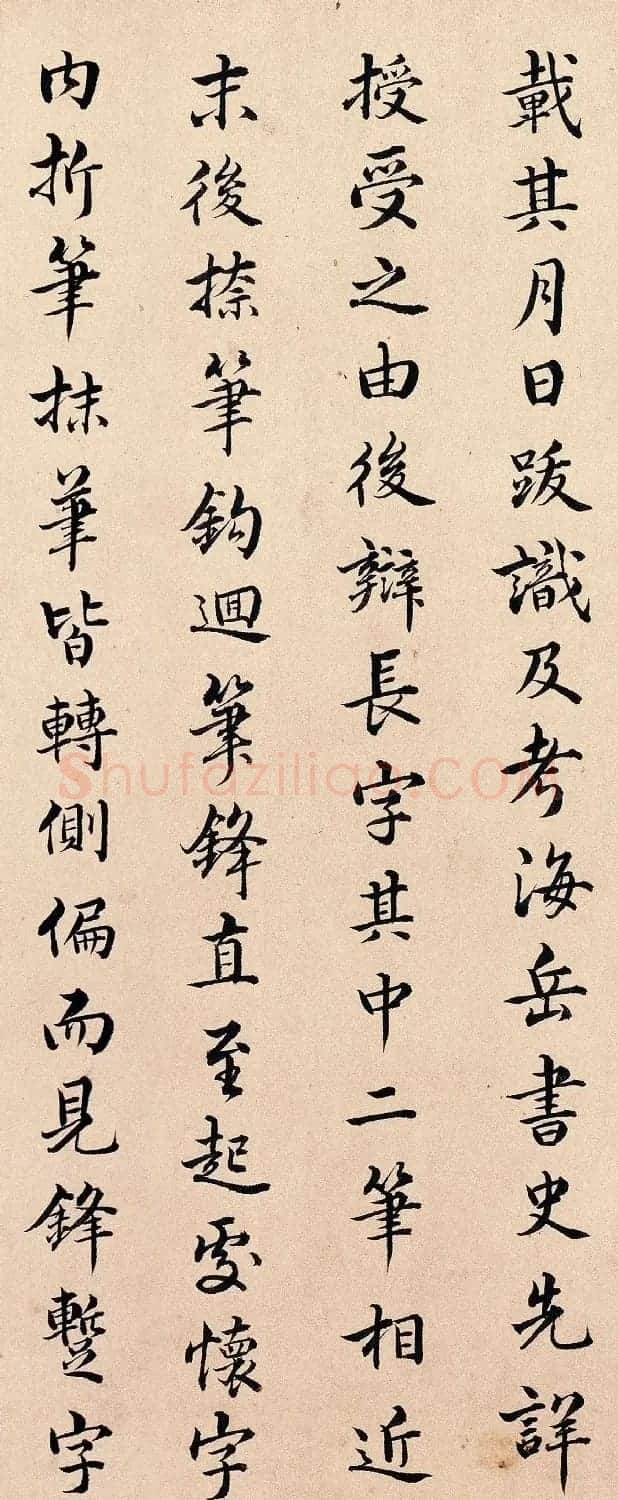 載其月日跋識及考海岳書史先詳
授受之由後辯長字其中二筆相近
末後捺筆鈎迴筆鋒直至起處懷字
内折筆抹筆皆轉側偏而見鋒蹔字
Shufaziliao.COM